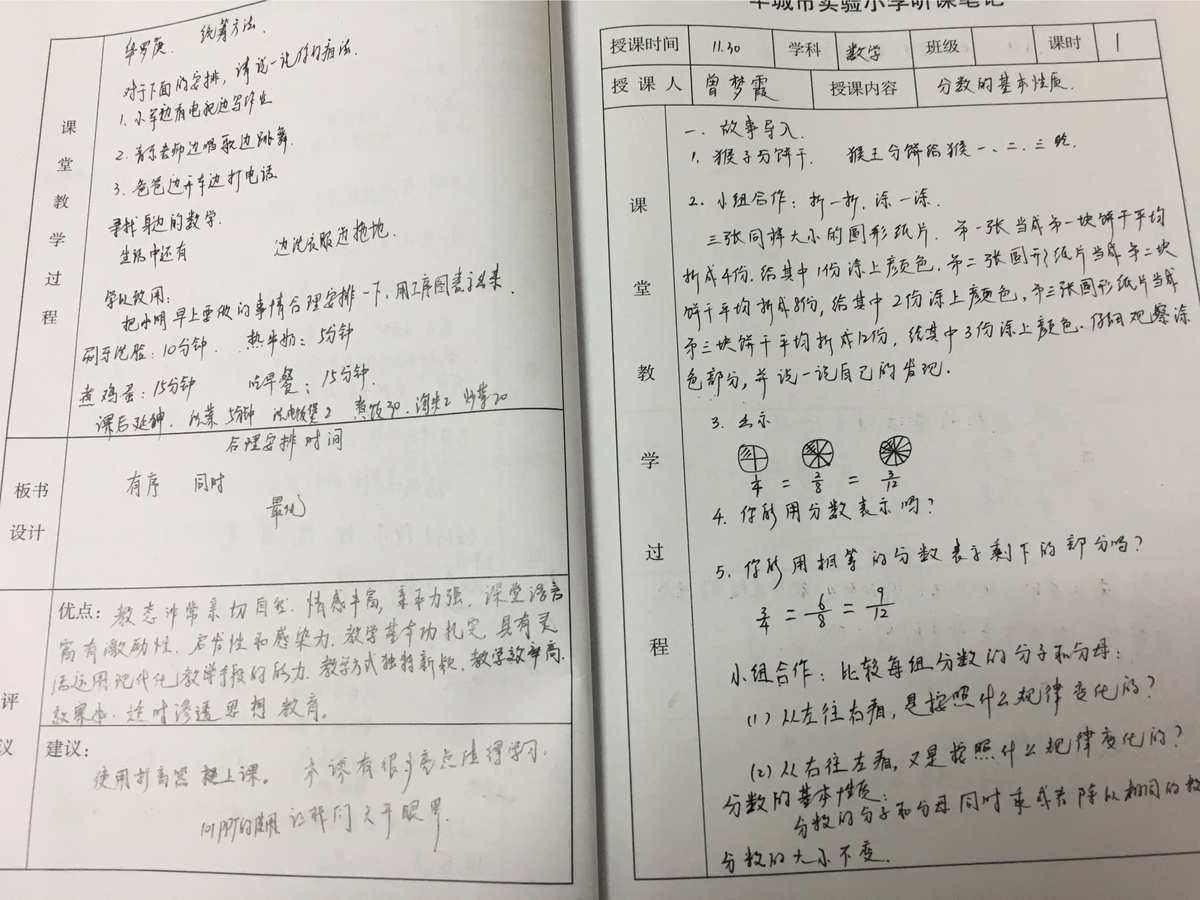 课堂教学过程
华罗庚 统筹方法.
对于下面的安排, 请说一说你的看法.
1. 小军边看电视边写作业
2. 音乐老师边唱歌边跳舞.
3. 爸爸边开车边打电话
寻找身边的数学.
生活中还有 边洗衣服边拖地.
学以致用:
把小明早上要做的事情合理安排一下, 用工序图表示出来.
刷牙洗脸: 10分钟. 热牛奶: 5分钟
煮鸡蛋: 15分钟 吃早餐: 15分钟.
课后延伸. 洗菜 5分钟 洗电饭煲2 煮饭30. 淘米2 炒菜20
板书设计
合理安排时间
有序 同时
最优
评议
优点: 教态非常亲切自然. 情感丰富, 素质力强. 课堂语言
富有激励性. 启发性和感染力. 教学基本功扎实. 具有灵
活运用现代化教学手段的能力. 教学方式独特新颖. 教学效率高.
效果好. 适时渗透思想教育.
建议:
使用扩音器 上课. 本课有很多亮点值得学习.
PPT的使用让我们大开眼界.
城市实验小学听课笔记
授课时间 11.30 学科 数学 班级 课时 1
授课人 曾梦霞 授课内容 分数的基本性质.
课堂教学过程
一. 故事导入.
1. 猴子分饼干. 猴王分饼给猴一、二、三吃.
2. 小组合作: 折一折. 涂一涂.
三张同样大小的圆形纸片. 第一张当成第一块饼干平均
折成4份. 给其中1份涂上颜色. 第二张圆形纸片当成第二块
饼干平均折成8份, 给其中2份涂上颜色, 第三张圆形纸片当成
第三块饼干平均折成12份, 给其中3份涂上颜色. 仔细观察涂
色部分, 并说一说自己的发现.
3. 出示
1/4 = 2/8 = 3/12
4. 你能用分数表示吗?
5. 你能用相等的分数表示剩下的部分吗?
3/4 = 6/8 = 9/12
小组合作: 比较每组分数的分子和分母:
(1) 从左往右看, 是按照什么规律变化的?
(2) 从右往左看, 又是按照什么规律变化的?
分数的基本性质:
分数的分子和分母同时乘或者除以相同的数
分数的大小不变.